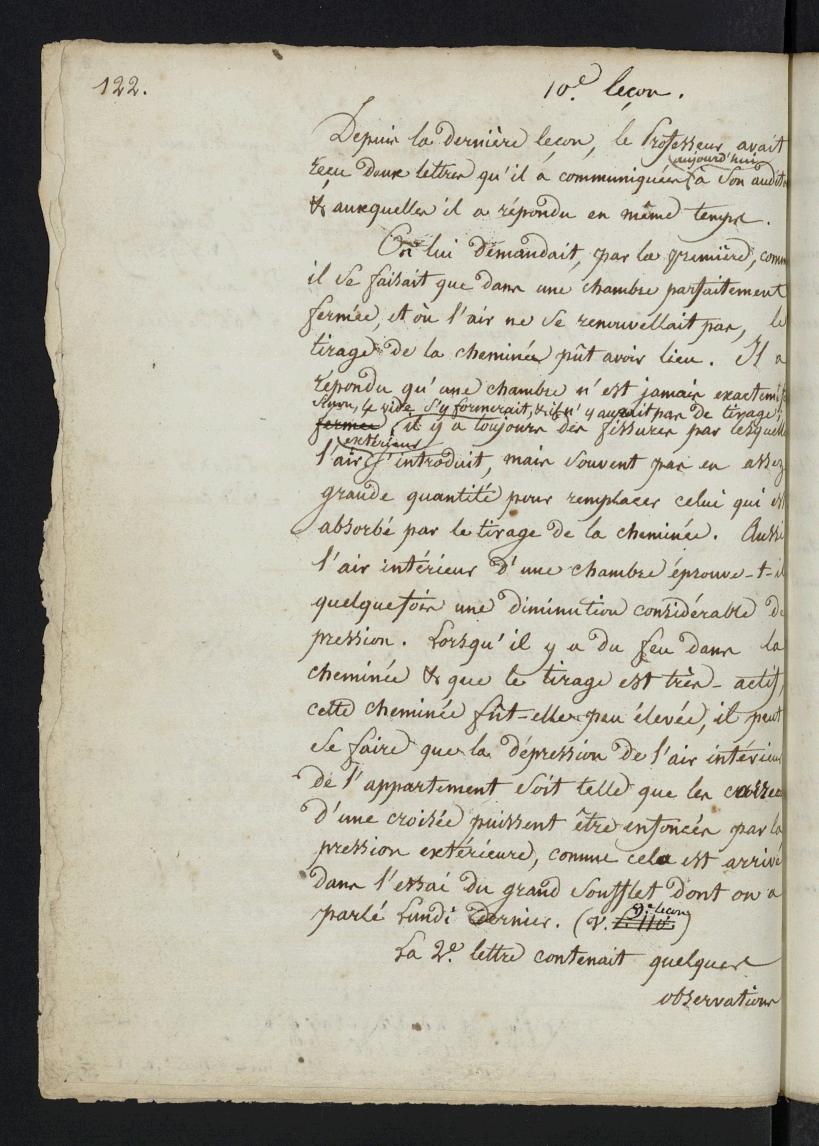 122.
10e. leçon.
Depuis la dernière leçon, le Professeur avait
aujourd'hui
reçu deux lettres qu'il a communiquées à son audit
& auxquelles il a répondu en même temps.
On lui demandait, par la première, comm
il se faisait que dans une chambre parfaitement
fermée, et où l'air ne se renouvellait pas, le
tirage de la cheminée pût avoir lieu. Il a
répondu qu'une chambre n'est jamais exactem
sinon, le vide s'y formerait, & il n'y aurait pas de tirage;
fermée il y a toujours des fissures par lesquelle
extérieur
l'air s'introduit, mais souvent pas en assez
grande quantité pour remplacer celui qui est
absorbé par le tirage de la cheminée. Aussi
l'air intérieur d'une chambre éprouve-t-il
quelquefois une diminution considérable de
pression. Lorsqu'il y a du feu dans la
cheminée & que le tirage est très-actif,
cette cheminée fût-elle peu élevée, il peut
se faire que la dépression de l'air intérieur
de l'appartement soit telle que les carreau
d'une croisée puissent être enfoncés par la
pression extérieure, comme cela est arrivé
dans l'essai du grand soufflet dont on a
9e. leçon
parlé Lundi dernier. (V. p. 110)
La 2e. lettre contenait quelques
observations